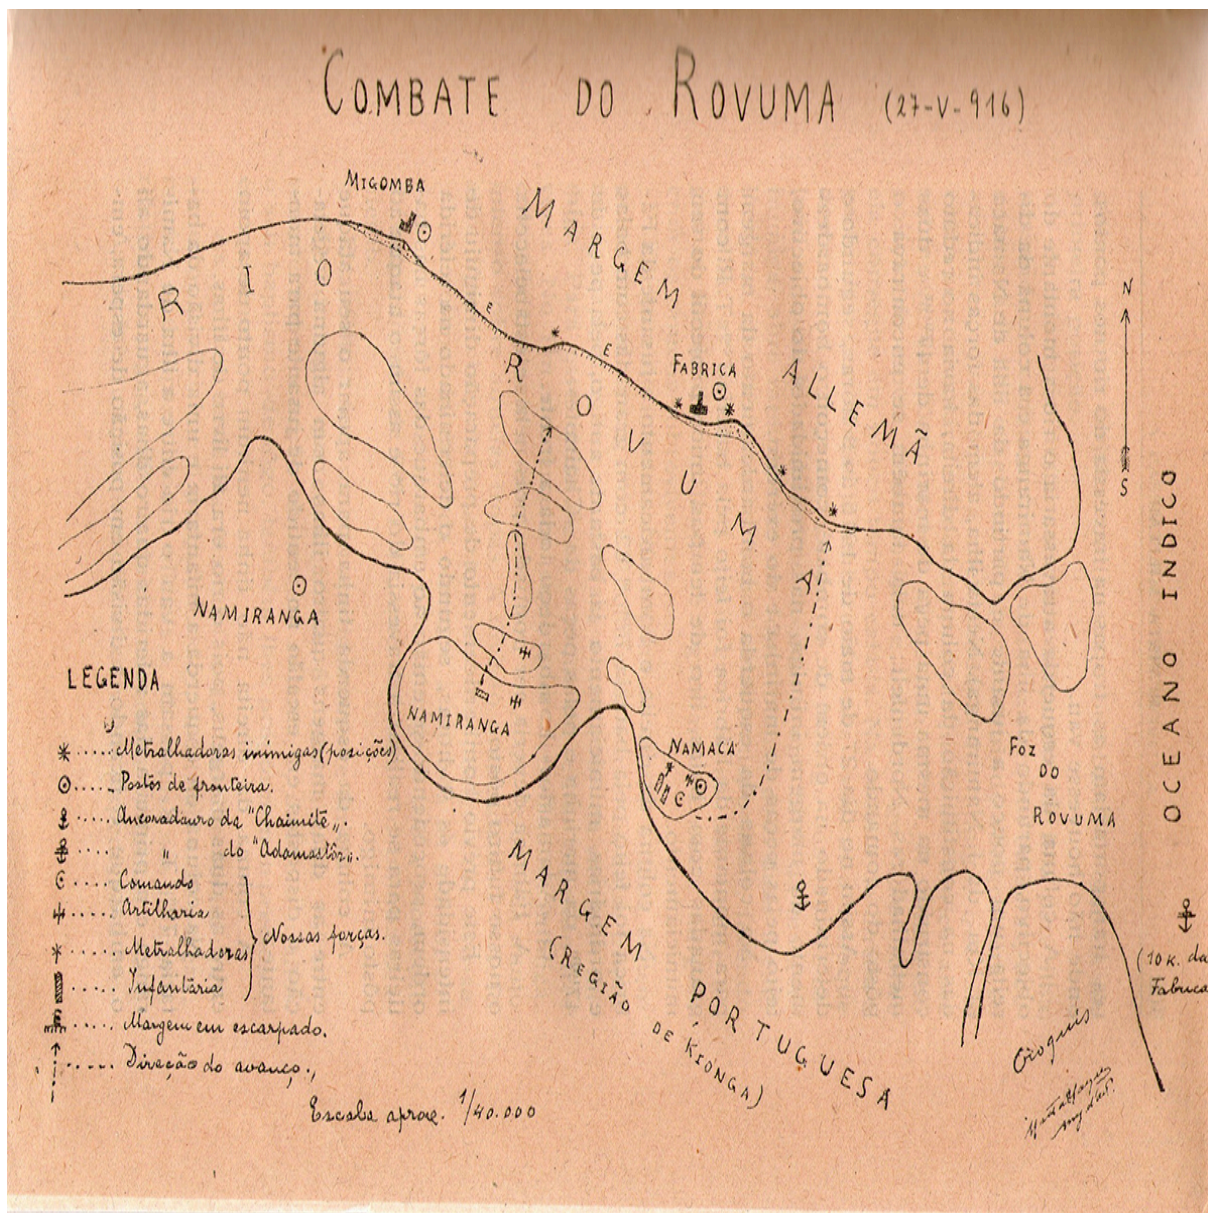 COMBATE DO ROVUMA (27-V-916)
MIGOMBA
MARGEM ALLEMÃ
RIO ROVUMA
E
E
FABRICA
N
S
OCEANO INDICO
NAMIRANGA
NAMIRANGA
NAMACA
FOZ
DO
ROVUMA
(10 K. da
Fabrica
MARGEM PORTUGUESA
(REGIÃO DE KIONGA)
LEGENDA
..... Metralhadoras inimigas (posições)
..... Postos de fronteira.
.... Ancoradouro da "Chaimite„.
.... " do "Adamastôr„.
.... Comando
.... Artilharia
.... Metralhadoras
.... Infantaria
Nossas forças.
.... Margem em escarpado.
..... Direcção do avanço.,
Escala aprox. 1/40.000
Croquis